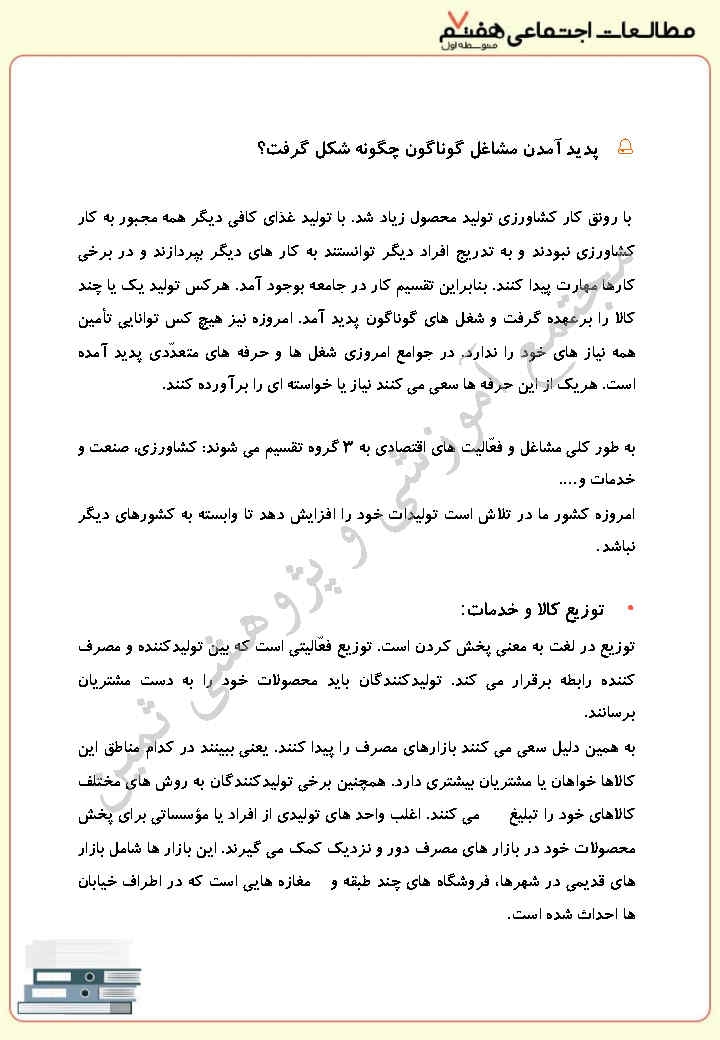 مطالعات اجتماعی هفتم
متوسطه اول
پدید آمدن مشاغل گوناگون چگونه شکل گرفت؟
با رونق کار کشاورزی تولید محصول زیاد شد. با تولید غذای کافی دیگر همه مجبور به کار
کشاورزی نبودند و به تدریج افراد دیگر توانستند به کار های دیگر بپردازند و در برخی
کارها مهارت پیدا کنند. بنابراین تقسیم کار در جامعه بوجود آمد. هرکس تولید یک یا چند
کالا را برعهده گرفت و شغل های گوناگون پدید آمد. امروزه نیز هیچ کس توانایی تأمین
همه نیاز های خود را ندارد. در جوامع امروزی شغل ها و حرفه های متعدّدی پدید آمده
است. هریک از این حرفه ها سعی می کنند نیاز یا خواسته ای را برآورده کنند.
به طور کلی مشاغل و فعّالیت های اقتصادی به ۳ گروه تقسیم می شوند: کشاورزی، صنعت و
خدمات و....
امروزه کشور ما در تلاش است تولیدات خود را افزایش دهد تا وابسته به کشورهای دیگر
نباشد.
• توزیع کالا و خدمات:
توزیع در لغت به معنی پخش کردن است. توزیع فعّالیتی است که بین تولیدکننده و مصرف
کننده رابطه برقرار می کند. تولیدکنندگان باید محصولات خود را به دست مشتریان
برسانند.
به همین دلیل سعی می کنند بازارهای مصرف را پیدا کنند. یعنی ببینند در کدام مناطق این
کالاها خواهان یا مشتریان بیشتری دارد. همچنین برخی تولیدکنندگان به روش های مختلف
کالاهای خود را تبلیغ می کنند. اغلب واحد های تولیدی از افراد یا مؤسساتی برای پخش
محصولات خود در بازار های مصرف دور و نزدیک کمک می گیرند. این بازار ها شامل بازار
های قدیمی در شهرها، فروشگاه های چند طبقه و مغازه هایی است که در اطراف خیابان
ها احداث شده است.
مجتمع آموزشی و پژوهشی ثمین